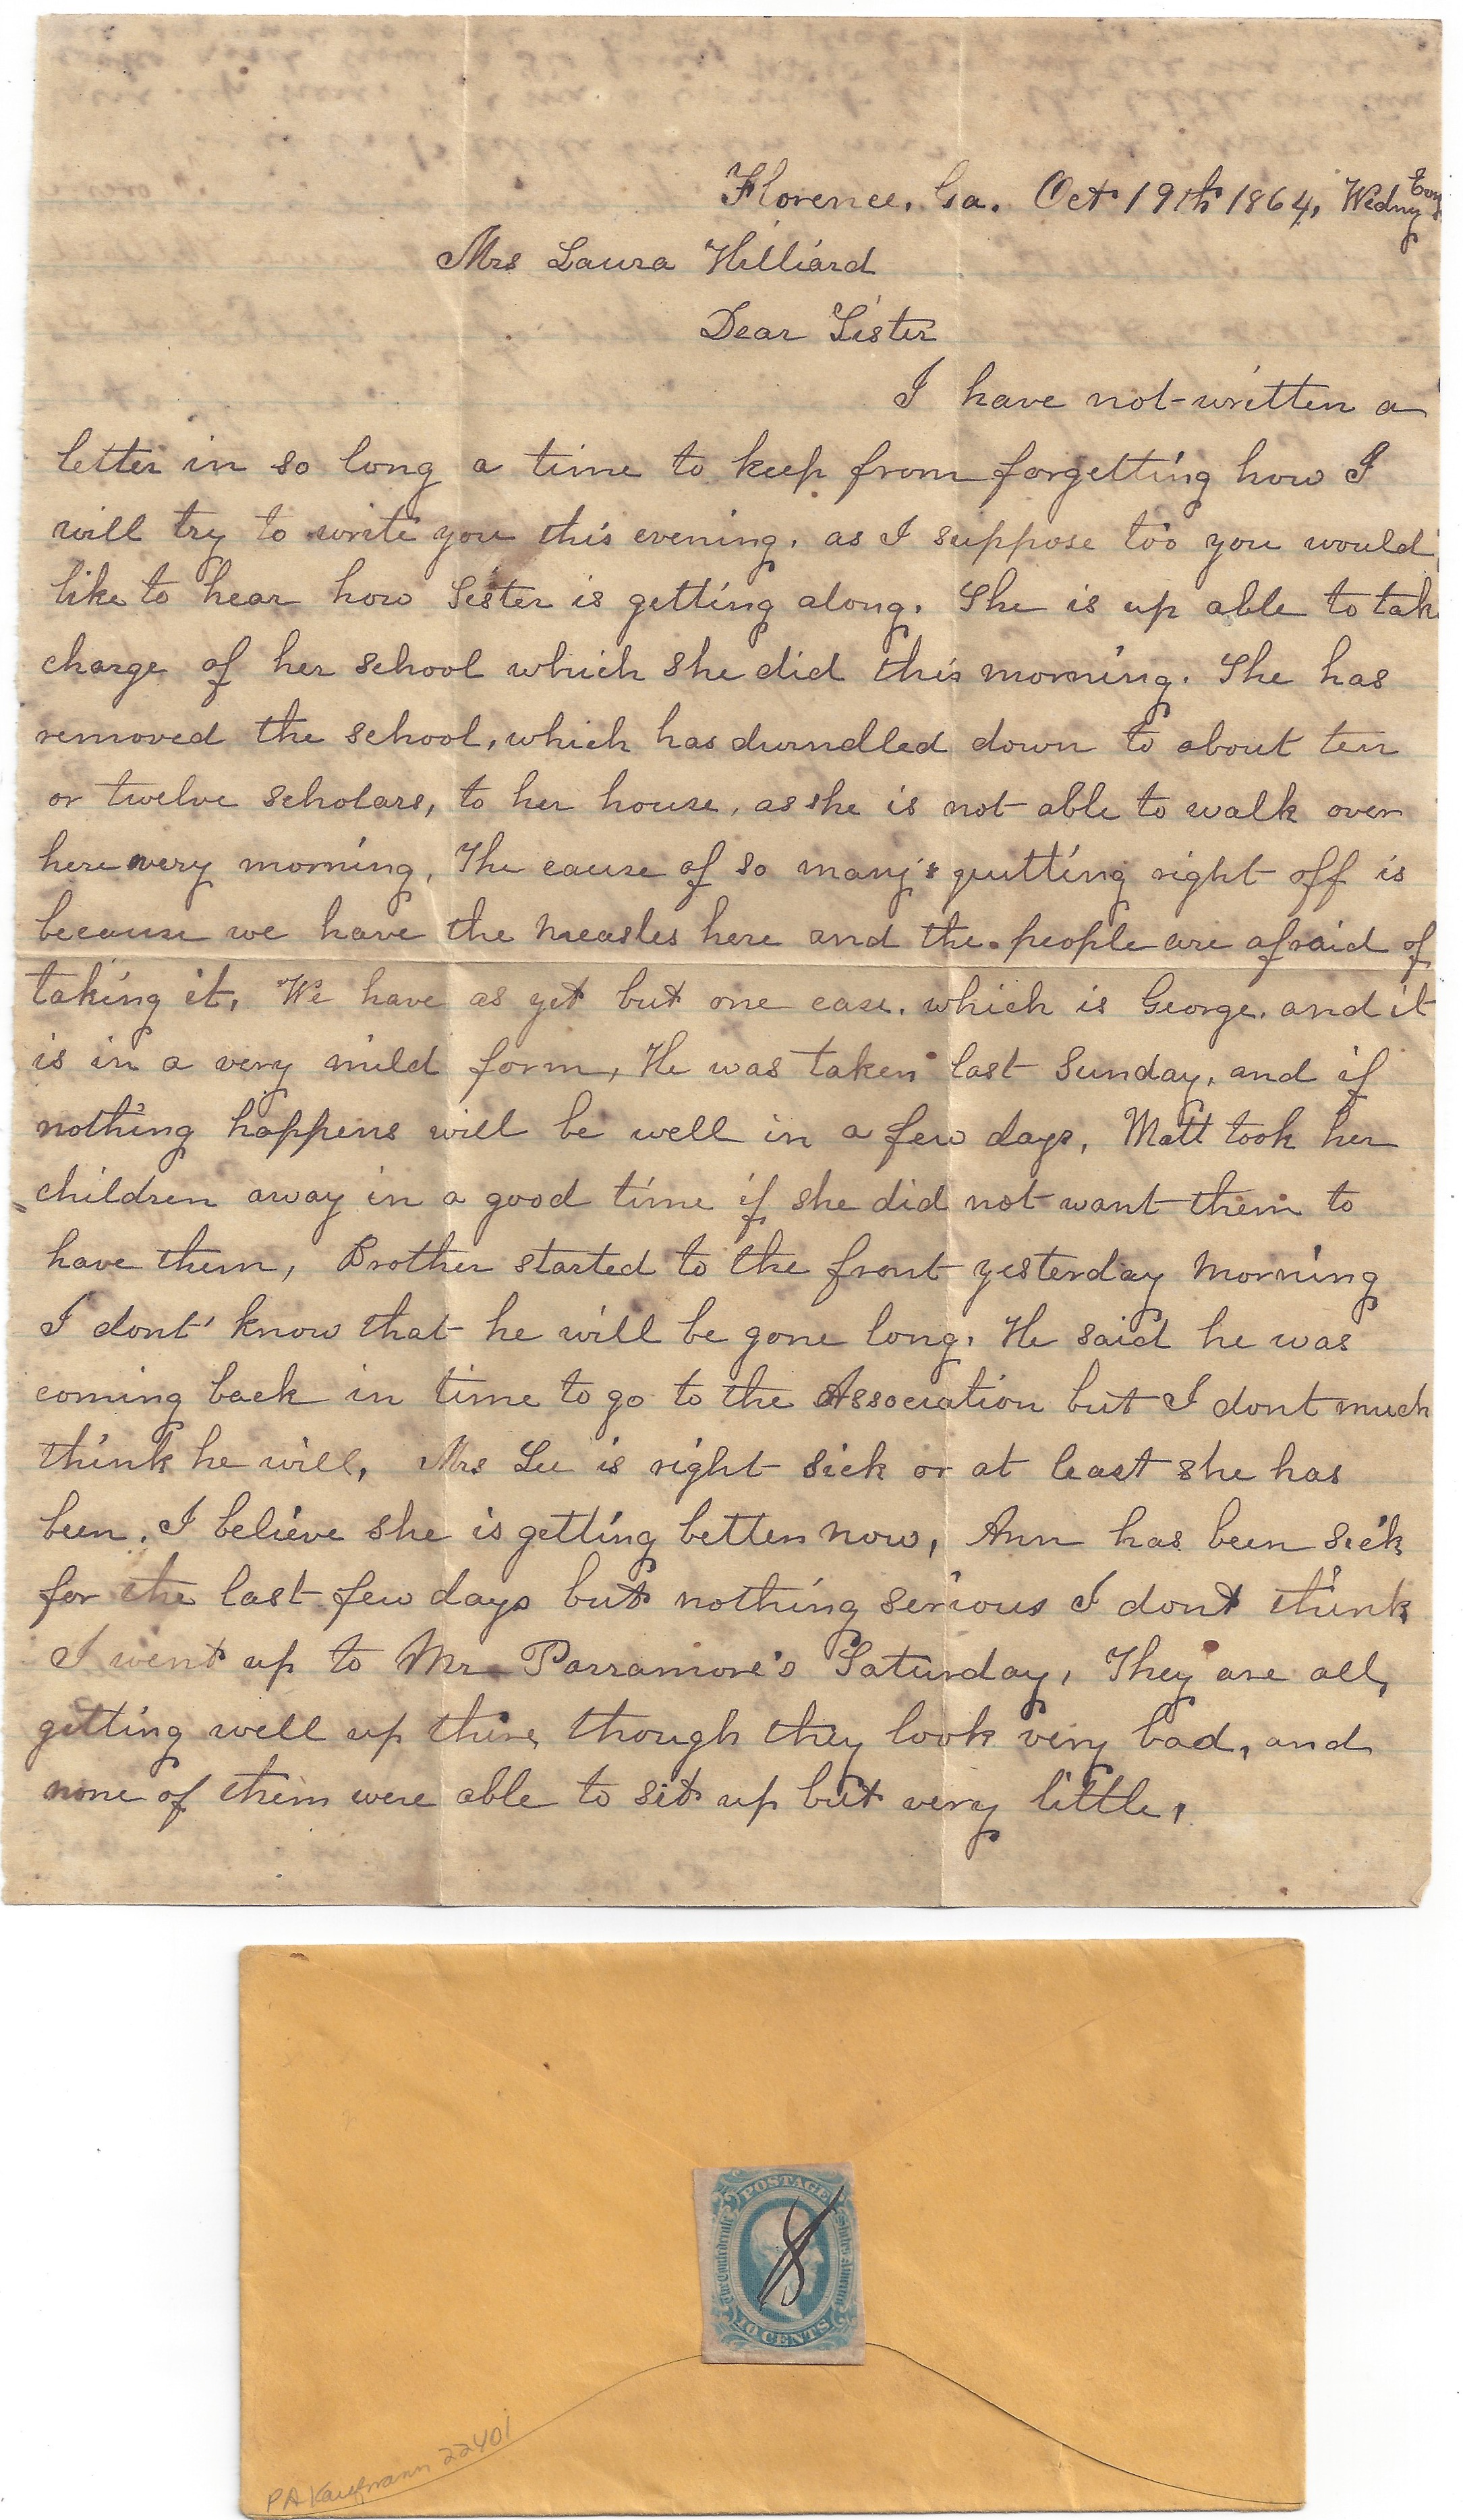 Florence, Ga. Oct 19th 1864, Wedny Evng
Mrs Laura Hilliard
Dear Sister
I have not written a
letter in so long a time to keep from forgetting how I
will try to write you this evening, as I suppose too you would
like to hear how Sister is getting along. She is up able to tak
charge of her school which she did this morning. She has
removed the school, which has dwindled down to about ten
or twelve scholars, to her house, as she is not able to walk over
here every morning, The cause of so many's quitting right off is
because we have the measles here and the people are afraid of
taking it, We have as yet but one case, which is George, and it
is in a very mild form, He was taken last Sunday, and if
nothing happens will be well in a few days, Matt took her
children away in a good time if she did not want them to
have them, Brother started to the front yesterday morning
I dont' know that he will be gone long, He said he was
coming back in time to go to the Association but I dont much
think he will, Mrs Lee is right sick or at least she has
been, I believe she is getting better now, Ann has been sick
for the last few days but nothing serious I dont think
I went up to Mr Parramore's Saturday, They are all,
getting well up there, though they look very bad, and
none of them were able to sit up but very little,
POSTAGE
The Confederate States of America
10 CENTS
PA Kaufmann 22401